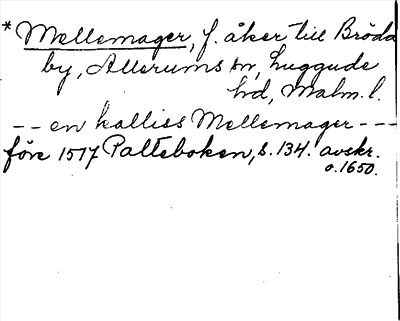 * Mellemager, f. åker till Bröda
by, Allerums sn, Luggude
hd, Malm. l.
-- en kalliss Mellemager ---
före 1517 Palteboken, s. 134. avskr.
o. 1650.